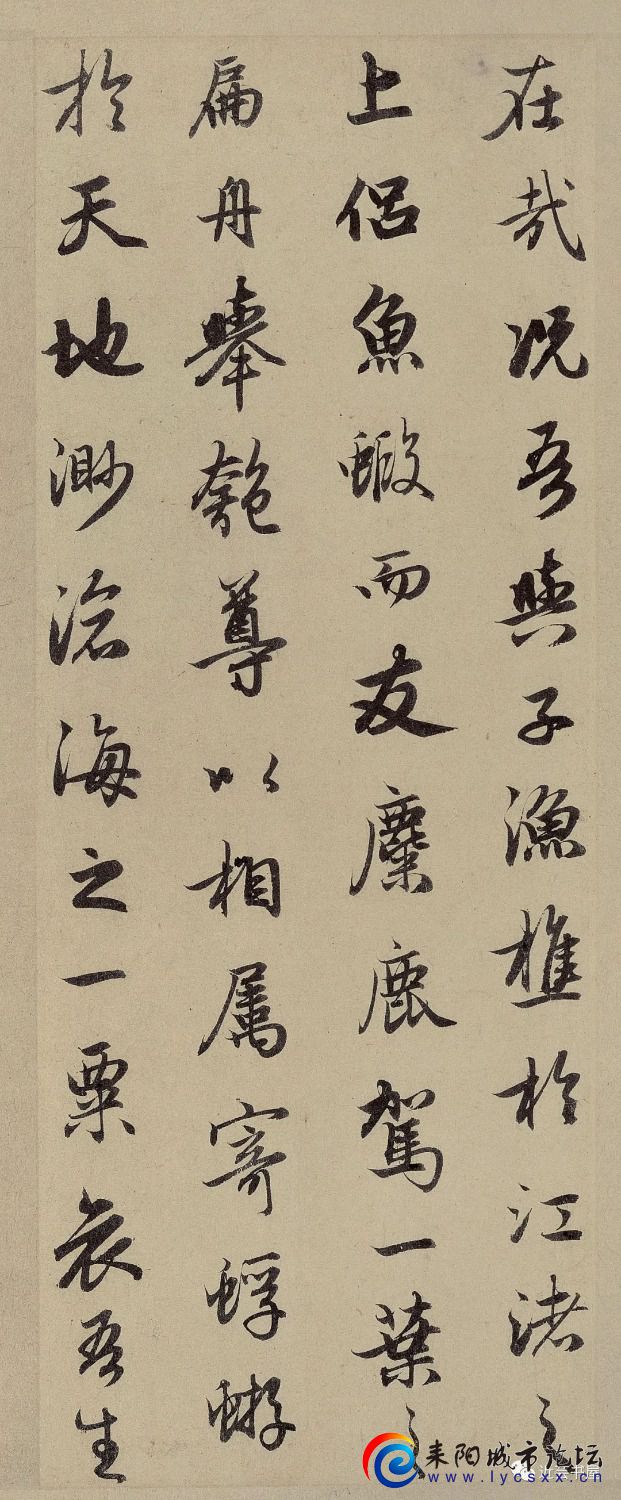 在哉况吾與子漁樵於江渚之
上侶魚蝦而友麋鹿駕一葉之
扁舟舉匏尊以相属寄蜉蝣
於天地渺滄海之一粟哀吾生
耒阳城市论坛
www.lycsxx.cn